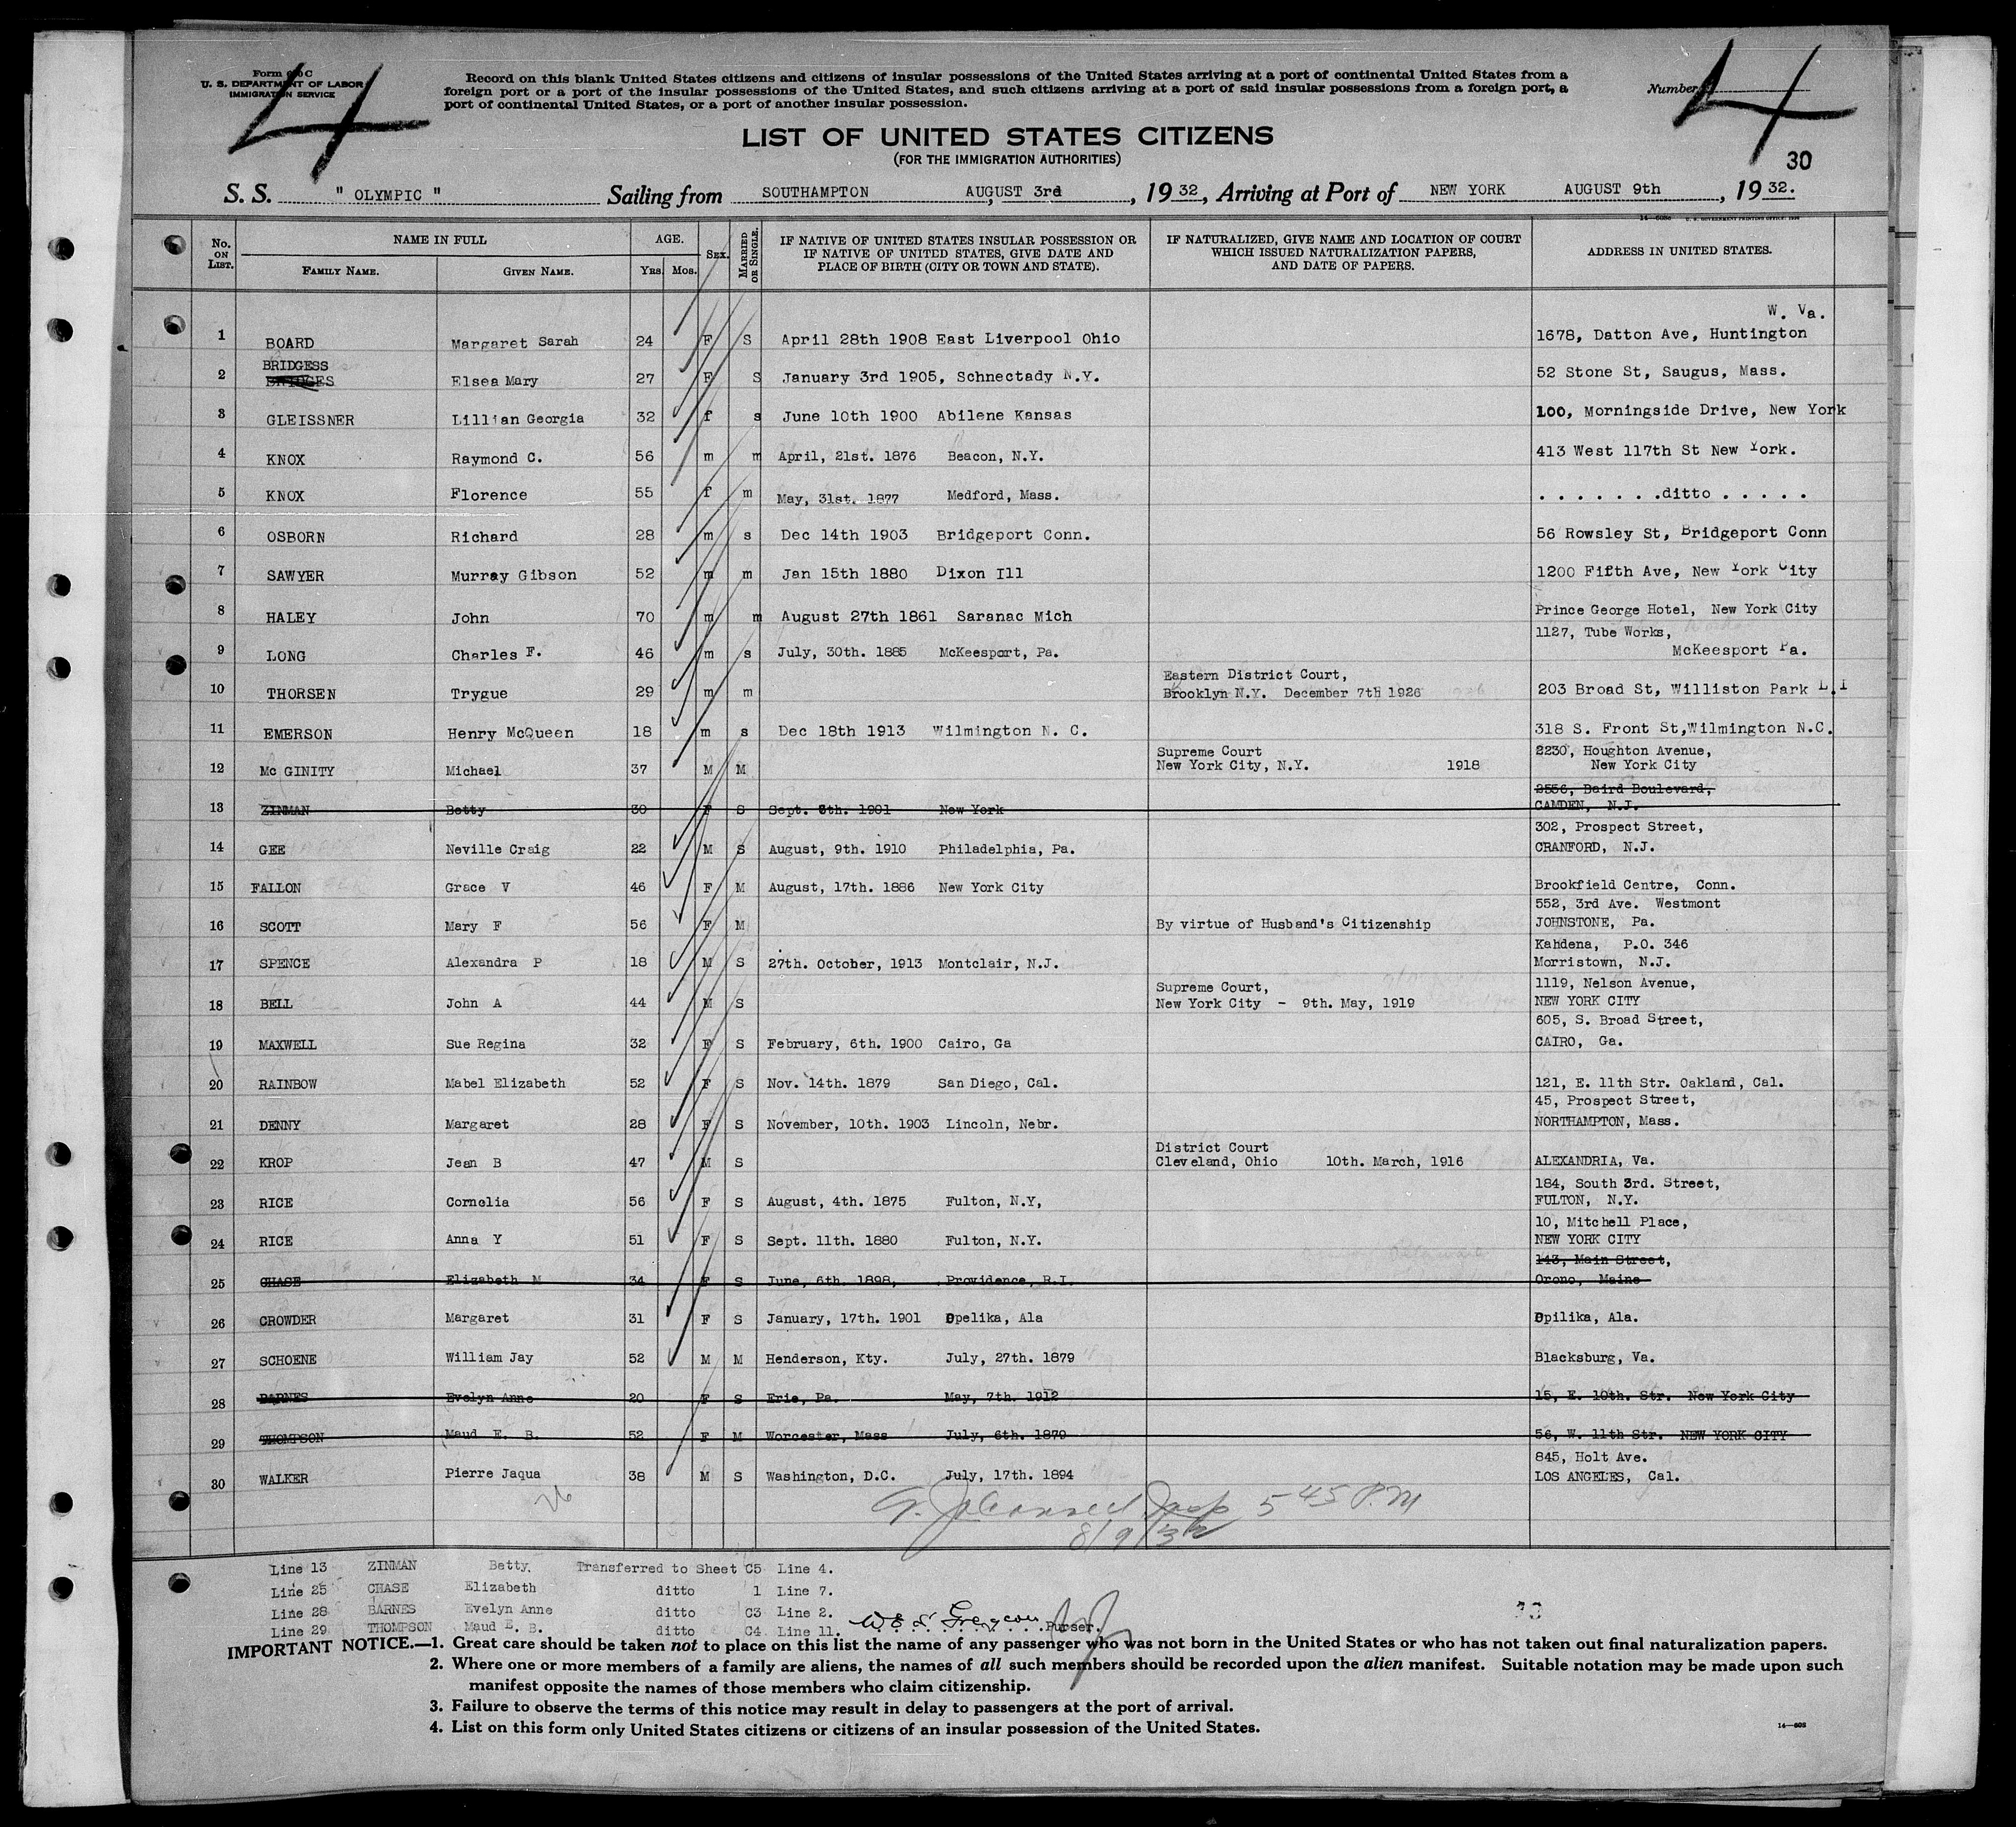 Form 630 C
U. S. DEPARTMENT OF LABOR
IMMIGRATION SERVICE
4
Record on this blank United States citizens and citizens of insular possessions of the United States arriving at a port of continental United States from a
foreign port or a port of the insular possessions of the United States, and such citizens arriving at a port of said insular possessions from a foreign port, a
port of continental United States, or a port of another insular possession.
Number
4
LIST OF UNITED STATES CITIZENS
(FOR THE IMMIGRATION AUTHORITIES)
30
S. S. " OLYMPIC " Sailing from SOUTHAMPTON AUGUST 3rd, 1932, Arriving at Port of NEW YORK AUGUST 9th, 1932.
No. ON LIST. NAME IN FULL AGE. SEX. MARRIED OR SINGLE. IF NATIVE OF UNITED STATES INSULAR POSSESSION OR IF NATIVE OF UNITED STATES, GIVE DATE AND PLACE OF BIRTH (CITY OR TOWN AND STATE). IF NATURALIZED, GIVE NAME AND LOCATION OF COURT WHICH ISSUED NATURALIZATION PAPERS, AND DATE OF PAPERS. ADDRESS IN UNITED STATES.
FAMILY NAME. GIVEN NAME. YRS. MOS.
W. Va.
1 BOARD Margaret Sarah 24 F S April 28th 1908 East Liverpool Ohio 1678, Datton Ave, Huntington
BRIDGESS
2 BRIDGES Elsea Mary 27 F S January 3rd 1905, Schnectady N.Y. 52 Stone St, Saugus, Mass.
3 GLEISSNER Lillian Georgia 32 f s June 10th 1900 Abilene Kansas 100, Morningside Drive, New York
4 KNOX Raymond C. 56 m m April, 21st. 1876 Beacon, N.Y. 413 West 117th St New York.
5 KNOX Florence 55 f m May, 31st. 1877 Medford, Mass. . . . . . . .ditto . . . . .
6 OSBORN Richard 28 m s Dec 14th 1903 Bridgeport Conn. 56 Rowsley St, Bridgeport Conn
7 SAWYER Murray Gibson 52 m m Jan 15th 1880 Dixon Ill 1200 Fifth Ave, New York City
8 HALEY John 70 m m August 27th 1861 Saranac Mich Prince George Hotel, New York City
1127, Tube Works,
9 LONG Charles F. 46 m s July, 30th. 1885 McKeesport, Pa. McKeesport Pa.
Eastern District Court,
10 THORSEN Trygue 29 m m Brooklyn N.Y. December 7th 1926 203 Broad St, Williston Park L.I
11 EMERSON Henry McQueen 18 m s Dec 18th 1913 Wilmington N. C. 318 S. Front St,Wilmington N.C.
Supreme Court 2230, Houghton Avenue,
12 Mc GINITY Michael 37 M M New York City, N.Y. 1918 New York City
2556, Baird Boulevard,
13 ZINMAN Betty 30 F S Sept. 6th. 1901 New York CAMDEN, N.J.
302, Prospect Street,
14 GEE Neville Craig 22 M S August, 9th. 1910 Philadelphia, Pa. CRANFORD, N.J.
15 FALLON Grace V 46 F M August, 17th. 1886 New York City Brookfield Centre, Conn.
552, 3rd Ave. Westmont
16 SCOTT Mary F 56 F M By virtue of Husband's Citizenship JOHNSTONE, Pa.
Kahdena, P.O. 346
17 SPENCE Alexandra P 18 M S 27th. October, 1913 Montclair, N.J. Morristown, N.J.
Supreme Court, 1119, Nelson Avenue,
18 BELL John A 44 M S New York City - 9th. May, 1919 NEW YORK CITY
605, S. Broad Street,
19 MAXWELL Sue Regina 32 F S February, 6th. 1900 Cairo, Ga CAIRO, Ga.
20 RAINBOW Mabel Elizabeth 52 F S Nov. 14th. 1879 San Diego, Cal. 121, E. 11th Str. Oakland, Cal.
45, Prospect Street,
21 DENNY Margaret 28 F S November, 10th. 1903 Lincoln, Nebr. NORTHAMPTON, Mass.
District Court
22 KROP Jean B 47 M S Cleveland, Ohio 10th. March, 1916 ALEXANDRIA, Va.
184, South 3rd. Street,
23 RICE Cornelia 56 F S August, 4th. 1875 Fulton, N.Y, FULTON, N.Y.
10, Mitchell Place,
24 RICE Anna Y 51 F S Sept. 11th. 1880 Fulton, N.Y. NEW YORK CITY
143, Main Street,
25 CHASE Elizabeth M 34 F S June, 6th. 1898, Providence, R.I. Orono, Maine
26 CROWDER Margaret 31 F S January, 17th. 1901 Opelika, Ala Opilika, Ala.
27 SCHOENE William Jay 52 M M Henderson, Kty. July, 27th. 1879 Blacksburg, Va.
28 BARNES Evelyn Anne 20 F S Erie, Pa. May, 7th. 1912 15, E. 10th. Str. New York City
29 THOMPSON Maud E. B. 52 F M Worcester, Mass July, 6th. 1879 56, W. 11th Str. NEW YORK CITY
845, Holt Ave.
30 WALKER Pierre Jaqua 38 M S Washington, D.C. July, 17th. 1894 LOS ANGELES, Cal.
26
Insp 5 45 P.M
8/9/32
Line 13 ZINMAN Betty. Transferred to Sheet C5 Line 4.
Line 25 CHASE Elizabeth ditto 1 Line 7.
Line 28 BARNES Evelyn Anne ditto C3 Line 2.
Line 29 THOMPSON Maud E. B. ditto C4 Line 11. Purser.
IMPORTANT NOTICE.—1. Great care should be taken not to place on this list the name of any passenger who was not born in the United States or who has not taken out final naturalization papers.
2. Where one or more members of a family are aliens, the names of all such members should be recorded upon the alien manifest. Suitable notation may be made upon such
manifest opposite the names of those members who claim citizenship.
3. Failure to observe the terms of this notice may result in delay to passengers at the port of arrival.
4. List on this form only United States citizens or citizens of an insular possession of the United States.